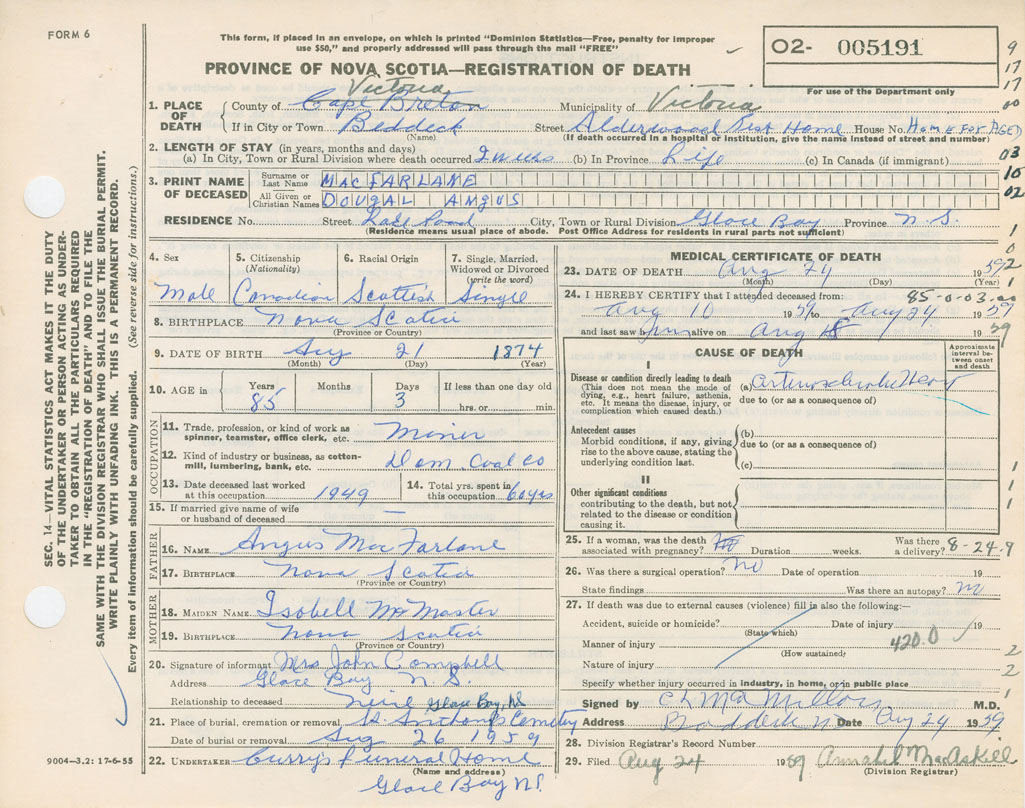 FORM 6
This form, if placed in an envelope, on which is printed "Dominion Statistics—Free, penalty for improper
use $50," and properly addressed will pass through the mail "FREE"
O2- 005191
For use of the Department only
PROVINCE OF NOVA SCOTIA—REGISTRATION OF DEATH
Victoria
1. PLACE OF DEATH County of Cape Breton Municipality of Victoria
If in City or Town Beddeck Street Alderwood Rest Home House No. HOME FOR AGED
(Name) (If death occurred in a hospital or institution, give the name instead of street and number)
2. LENGTH OF STAY (in years, months and days)
(a) In City, Town or Rural Division where death occurred 2 wks (b) In Province Life (c) In Canada (if immigrant)
3. PRINT NAME OF DECEASED
Surname or Last Name MACFARLANE
All Given or Christian Names DOUGAL ANGUS
RESIDENCE No. Street City, Town or Rural Division Glace Bay Province N.S.
(Residence means usual place of abode. Post Office Address for residents in rural parts not sufficient)
4. Sex 5. Citizenship (Nationality) 6. Racial Origin 7. Single, Married, Widowed or Divorced (write the word)
Male Canadian Scottish Single
8. BIRTHPLACE Nova Scotia
(Province or Country)
9. DATE OF BIRTH Aug 21 1874
(Month) (Day) (Year)
10. AGE in Years Months Days If less than one day old
85 3 hrs. or min.
OCCUPATION
11. Trade, profession, or kind of work as
spinner, teamster, office clerk, etc. Miner
12. Kind of industry or business, as cotton-
mill, lumbering, bank, etc. Dom. Coal Co
13. Date deceased last worked
at this occupation 1949
14. Total yrs. spent in
this occupation 60 yrs
15. If married give name of wife
or husband of deceased —
FATHER
16. NAME Angus MacFarlane
17. BIRTHPLACE Nova Scotia
(Province or Country)
MOTHER
18. MAIDEN NAME Isobell McMaster
19. BIRTHPLACE Nova Scotia
(Province or Country)
20. Signature of informant Mrs John Campbell
Address Glace Bay N.S.
Relationship to deceased Glace Bay, NS
21. Place of burial, cremation or removal St. Anthony's Cemetery
Date of burial or removal Aug 26 1959
22. UNDERTAKER Curry's Funeral Home
(Name and address)
Glace Bay NS.
MEDICAL CERTIFICATE OF DEATH
23. DATE OF DEATH Aug 24 1959
(Month) (Day) (Year)
24. I HEREBY CERTIFY that I attended deceased from: 85-0-03.00
Aug 10 1959 to Aug 24 1959
and last saw him alive on Aug 1959
CAUSE OF DEATH
Approximate interval between onset and death
I
Disease or condition directly leading to death
(This does not mean the mode of
dying, e.g., heart failure, asthenia,
etc. It means the disease, injury, or
complication which caused death.)
(a)
due to (or as a consequence of)
Antecedent causes
Morbid conditions, if any, giving
rise to the above cause, stating the
underlying condition last.
(b)
due to (or as a consequence of)
(c)
II
Other significant conditions
contributing to the death, but not
related to the disease or condition
causing it.
25. If a woman, was the death
associated with pregnancy? No Duration weeks. Was there a delivery? 8-24-9
26. Was there a surgical operation? No Date of operation 19
State findings Was there an autopsy? no
27. If death was due to external causes (violence) fill in also the following:—
Accident, suicide or homicide? Date of injury 19
(State which)
Manner of injury 420.0
(How sustained)
Nature of injury
Specify whether injury occurred in industry, in home, or in public place
Signed by C L MacMillan M.D.
Address Baddeck NS Date Aug 24 1959
28. Division Registrar's Record Number
29. Filed Aug 24 1959 Annabel MacAskill
(Division Registrar)
9
17
17
00
03
10
02
1
0
2
1
1
1
1
2
2
1
SEC. 14—VITAL STATISTICS ACT MAKES IT THE DUTY
OF THE UNDERTAKER OR PERSON ACTING AS UNDER-
TAKER TO OBTAIN ALL THE PARTICULARS REQUIRED
IN THE "REGISTRATION OF DEATH" AND TO FILE THE
SAME WITH THE DIVISION REGISTRAR WHO SHALL ISSUE THE BURIAL PERMIT.
WRITE PLAINLY WITH UNFADING INK. THIS IS A PERMANENT RECORD.
Every item of Information should be carefully supplied. (See reverse side for instructions.)
9004—3.2: 17-6-55